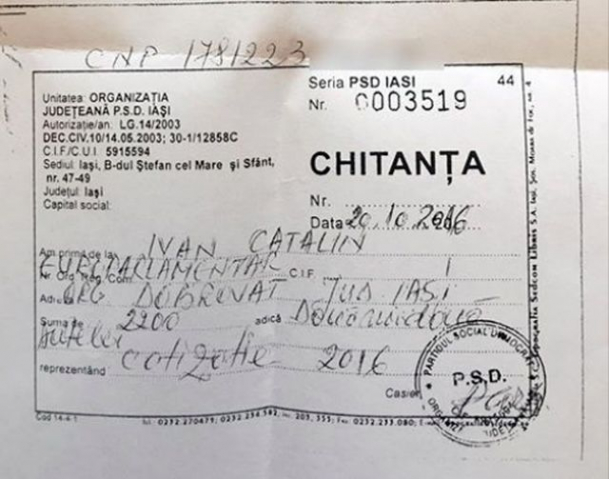 CNP 1781223
Unitatea: ORGANIZAȚIA
JUDEȚEANĂ P.S.D. IAȘI
Autorizație/an: LG.14/2003
DEC.CIV.10/14.05.2003; 30-1/12858C
C.I.F/C.U.I 5915594
Sediul: Iași, B-dul Ștefan cel Mare și Sfânt,
nr. 47-49
Județul: Iași
Capital social:
Seria PSD IASI 44
Nr. 0003519
CHITANȚA
Nr.
Data 20.10.2016
Am primit de la IVAN CATALIN
EUROPARLAMENTAR
Nr. Org. Reg. Com. C.I.F.
Adresa ORG DOBROVAT JUD IASI
Suma de 2200 adică Douămiidouă
sutelei
reprezentând cotizatie 2016
Casier
PARTIDUL SOCIAL DEMOCRAT
P.S.D.
Cod 14-4-1
Tel.: 0232.270471; 0232.234.582, int. 203, 333; Fax: 0232.233.080;